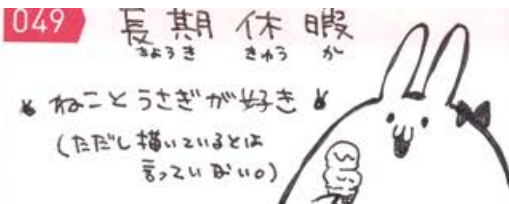 049
長期休暇
きょうき きゅう か
ねことうさぎが好き
(ただし描いているとは
言っていない。)